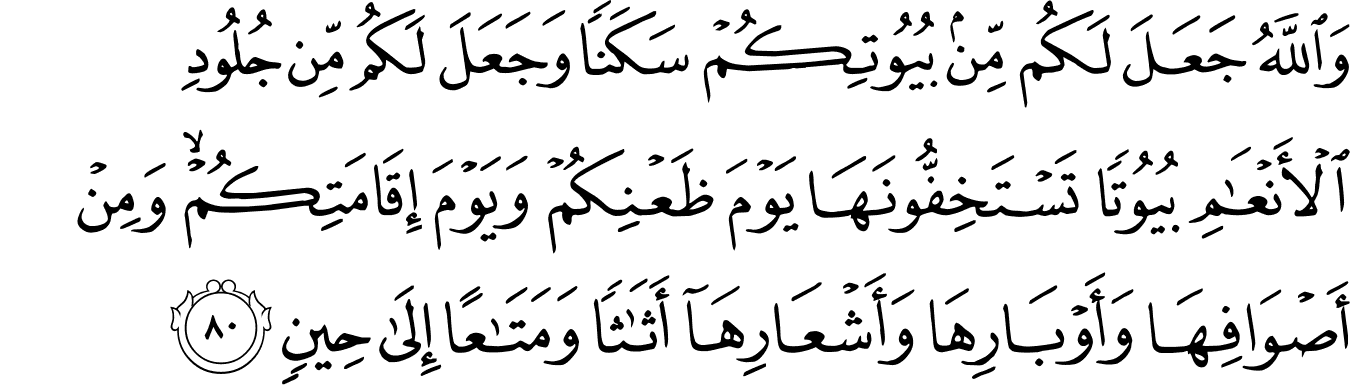 وَٱللَّهُ جَعَلَ لَكُم مِّنۢ بُيُوتِكُمْ سَكَنًا وَجَعَلَ لَكُم مِّن جُلُودِ
ٱلْأَنْعَٰمِ بُيُوتًا تَسْتَخِفُّونَهَا يَوْمَ ظَعْنِكُمْ وَيَوْمَ إِقَامَتِكُمْ ۙ وَمِنْ
أَصْوَافِهَا وَأَوْبَارِهَا وَأَشْعَارِهَآ أَثَٰثًا وَمَتَٰعًا إِلَىٰ حِينٍ ٨٠